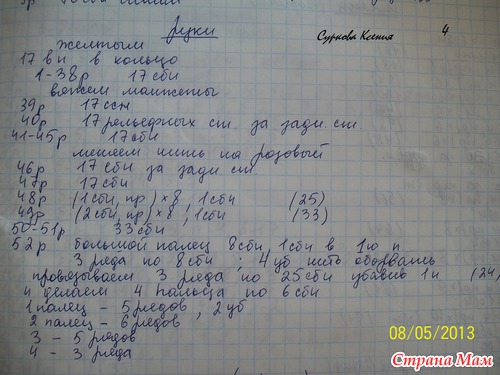 Руки
Суркова Ксения 4
желтым
17 вп в кольцо
1-38р 17 сбн
вяжем манжеты
39р 17 ссн
40р 17 рельефных ст. за задн. ст.
41-45р 17 сбн
меняем нить на розовый
46р 17 сбн за задн ст.
47р 17 сбн
48р (1сбн, пр) × 8, 1сбн (25)
49р (2сбн, пр) × 8, 1сбн (33)
50-51р 33 сбн
52р большой палец 8сбн, 1сбн в 1ю п
3 ряда по 8 сбн ; 4 уб нить оборвать
провязываем 3 ряда по 25сбн убавив 1п (24)
и делаем 4 пальца по 6 сбн
1 палец - 5 рядов, 2 уб
2 палец - 6 рядов
3 - 5 рядов
4 - 3 ряда
08/05/2013
Страна Мам